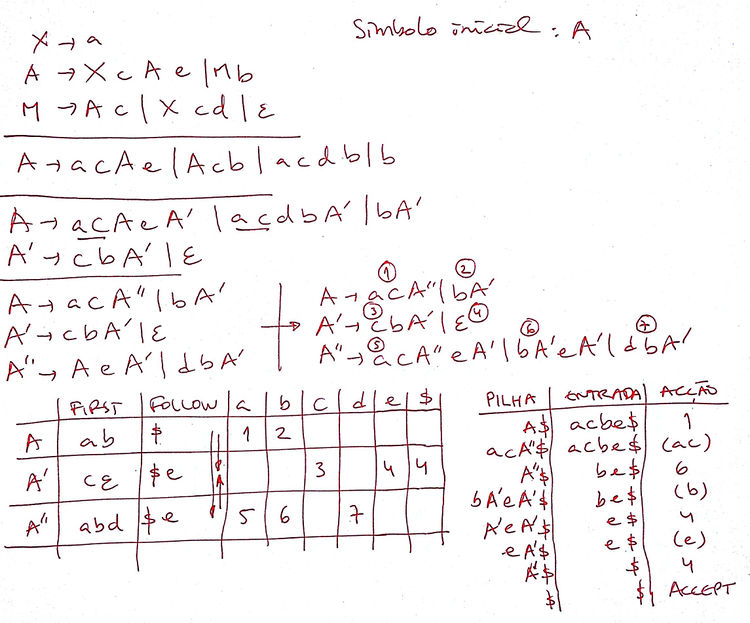 X → a
Símbolo inicial : A
A → X c A e | M b
M → A c | X c d | ε
A → a c A e | A c b | a c d b | b
A → a c A e A' | a c d b A' | b A'
A' → c b A' | ε
A → a c A'' | b A'
A' → c b A' | ε
A'' → A e A' | d b A'
① ②
A → a c A'' | b A'
③ ④
A' → c b A' | ε
⑤ ⑥ ⑦
A'' → a c A'' e A' | b A' e A' | d b A'
FIRST FOLLOW a b c d e $
A ab $ 1 2
A' cε $e 3 4 4
A'' abd $e 5 6 7
PILHA ENTRADA ACCÃO
A$ acbe$ 1
acA''$ acbe$ (ac)
A''$ be$ 6
bA'eA'$ be$ (b)
A'eA'$ e$ 4
eA'$ e$ (e)
A'$ $ 4
$ $ ACCEPT